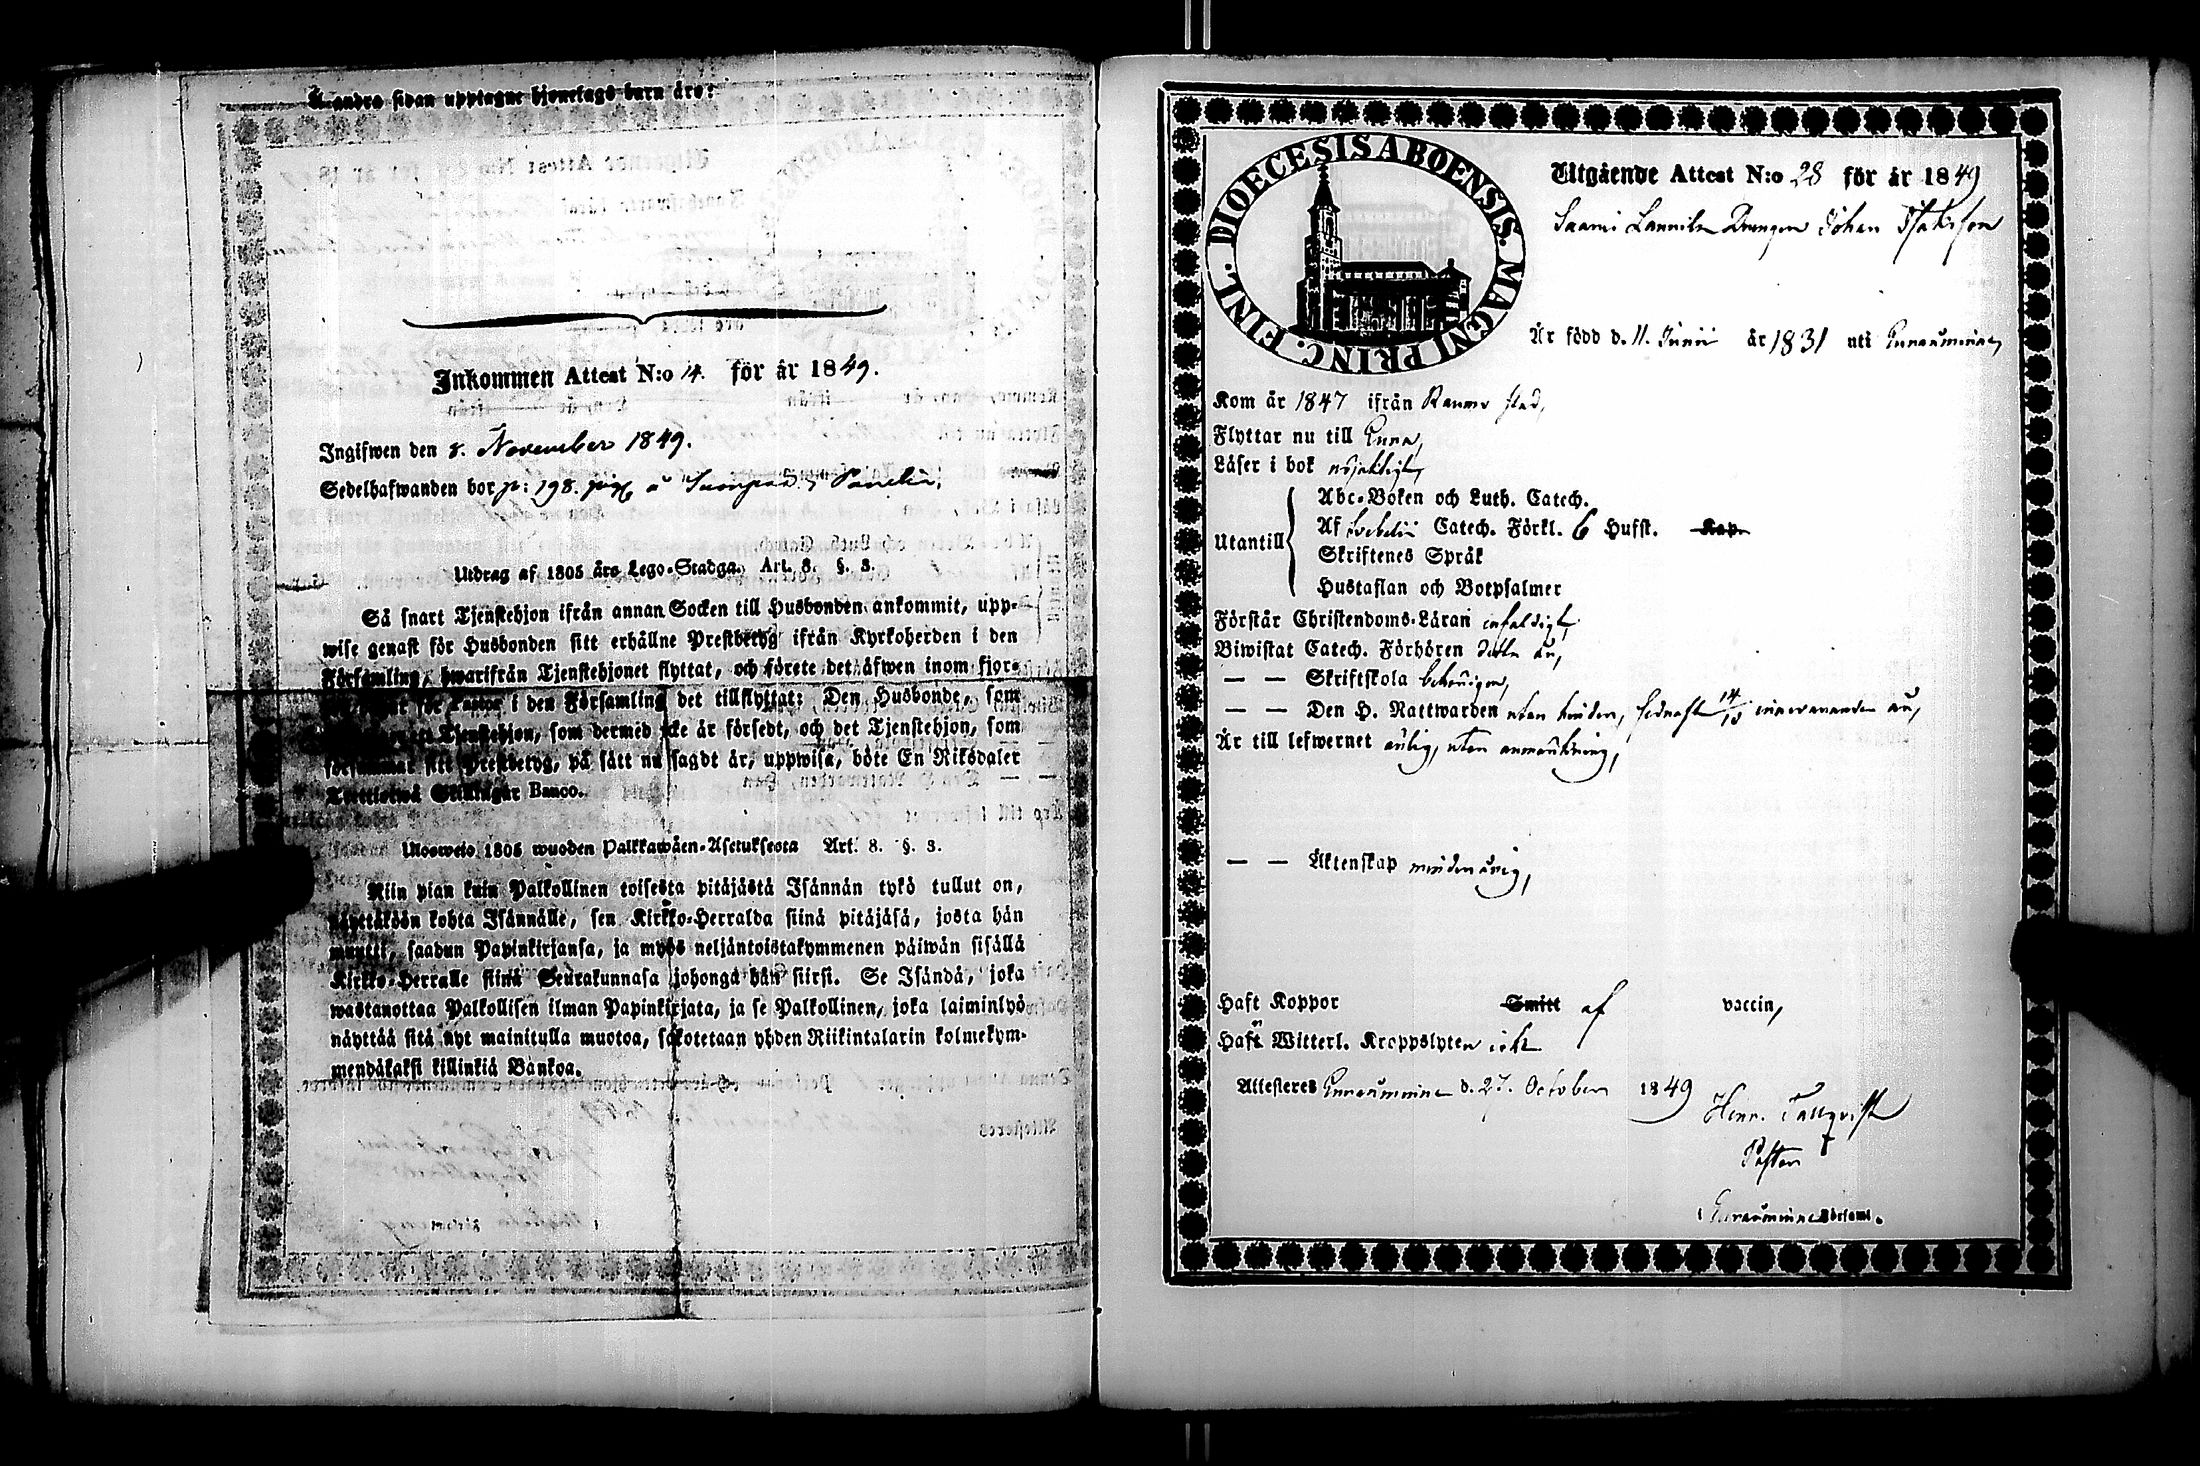 Å andra sidan upptagne hjonelags barn äro:
Inkommen Attest N:o 14. för år 1849.
Ingifwen den 8. November 1849.
Sedelhafwanden bor p: 198.
Utdrag af 1805 års Lego-Stadga. Art. 8. §. 3.
Så snart Tjenstehjon ifrån annan Socken till Husbonden ankommit, upp-
wise genast för Husbonden sitt erhållne Prestbetyg ifrån Kyrkoherden i den
Församling, hwarifrån Tjenstehjonet flyttat, och förete det äfwen inom fjor-
för Pastor i den Församling det tillflyttat: Den Husbonde, som
Tjenstehjon, som dermed icke är försedt, och det Tjenstehjon, som
försummar sitt Prestbetyg, på sätt nu sagdt är, uppwisa, böte En Riksdaler
Trettiotwå Skillingar Banco.
Ulosweto 1805 wuoden Palkkawäen-Asetuksesta Art. 8. §. 3.
Niin pian kuin Palkollinen toisesta pitäjästä Isännän tykö tullut on,
näyttäköön kohta Isännälle, sen Kirkko-Herralda siinä pitäjäsä, josta hän
muutti, saadun Papinkirjansa, ja myös neljäntoistakymmenen päiwän sisällä
Kirkko-Herralle siinä Seurakunnasa johonga hän siirsi. Se Isändä, joka
wastanottaa Palkollisen ilman Papinkirjata, ja se Palkollinen, joka laiminlyö
näyttää sitä nyt mainitulla muotoa, sakotetaan yhden Riikintalarin kolmekym-
mendäkaksi killinkiä Bankoa.
DIOECESIS ABOENSIS. MAGNI PRINC. FINL.
Utgående Attest N:o 28 för år 1849
Saami Lannila Drengen Johan Isaksson
Är född d. 11. Junii år 1831 uti Euraåminne,
Kom år 1847 ifrån Raumo stad,
Flyttar nu till Eura,
Läser i bok
Utantill
Abc-Boken och Luth. Catech.
Af Svebelii Catech. Förkl. 6 Hufst. Kap.
Skriftenes Språk
Hustaflan och Botpsalmer
Förstår Christendoms-Läran enfaldigt,
Biwistat Catech. Förhören
— — Skriftskola behörigen,
— — Den H. Nattwarden utan hinder, sednast 14/10 innevarande år,
Är till lefwernet ärlig, utan anmärkning,
— — Äktenskap minderårig,
Haft Koppor Smitt af vaccin,
Haft Witterl. Kroppslyten icke
Attesteres Euraåminne d. 27. October 1849
Henr. Tallqvist
Pastor
i Euraåminne Församl.